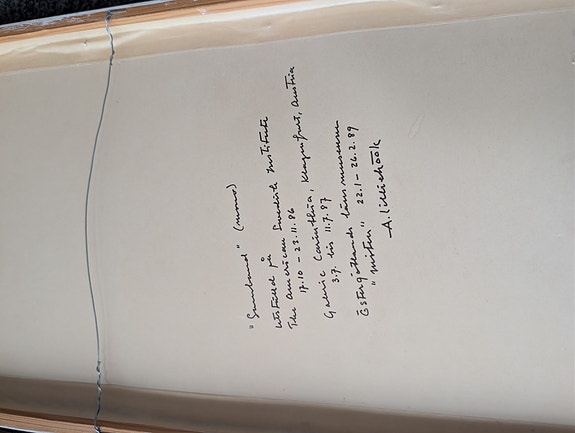 "Sundsund" (mono)
utställd på
The American Swedish Institute
17.10 - 23.11.86
Galerie Carinthia, Klagenfurt, Austria
3.7. bis 11.7.87
Östergötlands länsmuseum
"mitten" 22.1 - 26.2.89
A. Lilliehöök